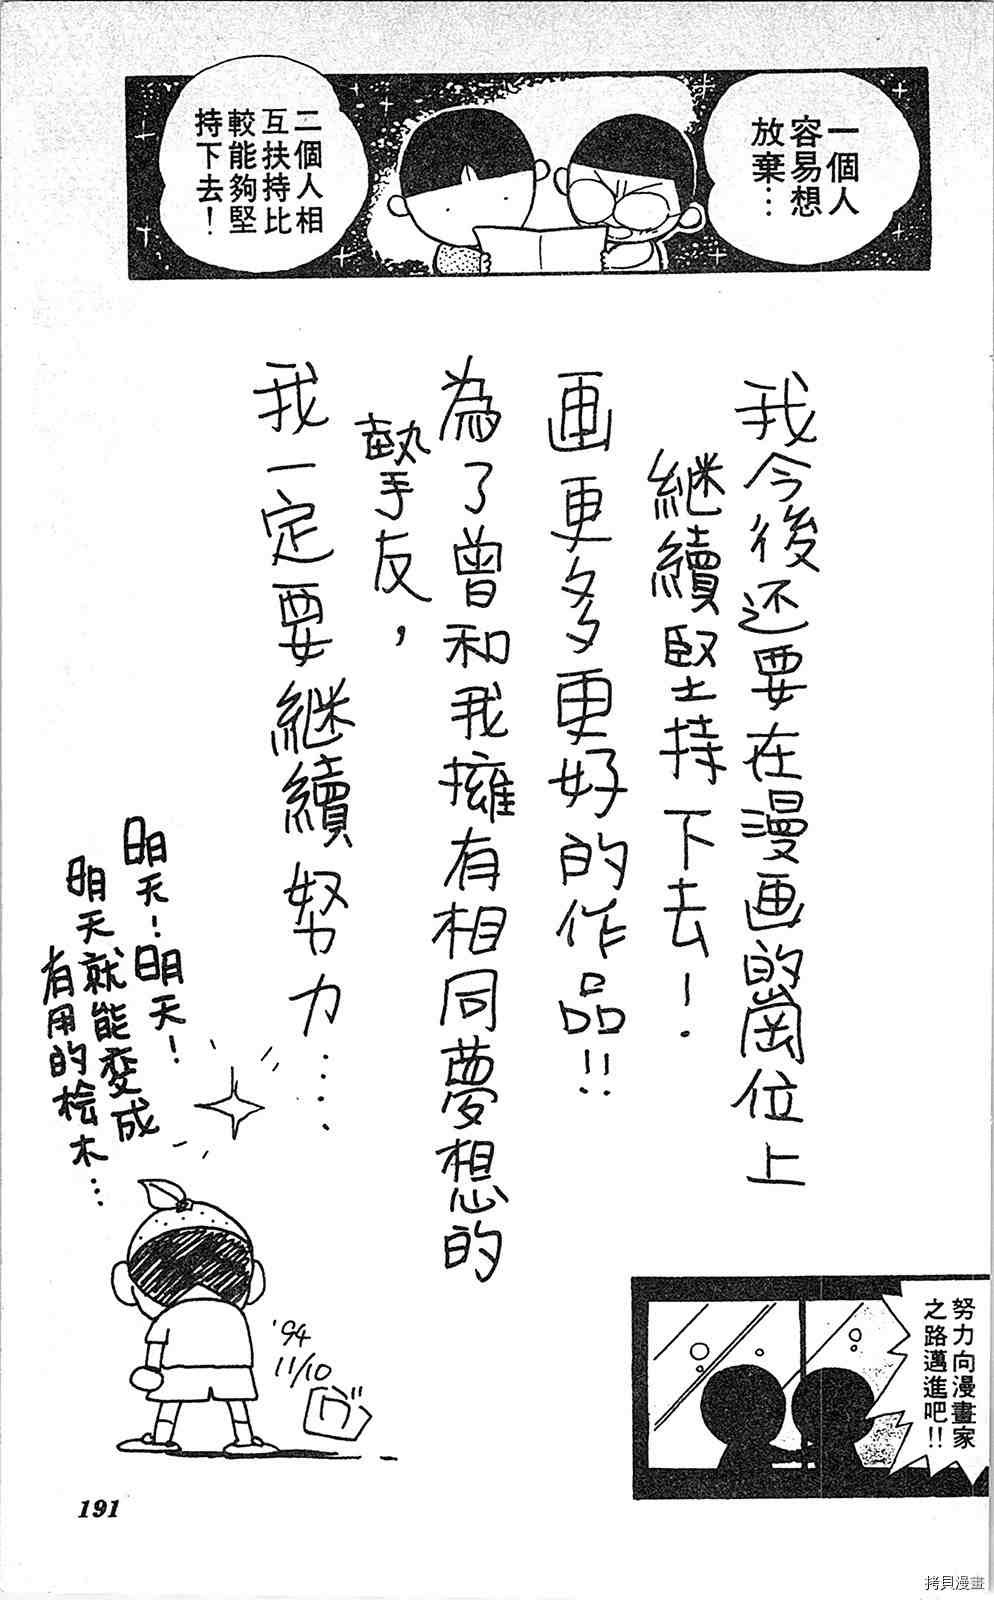 一個人
容易想
放棄…
二個人相
互扶持比
較能夠堅
持下去！
我今後还要在漫画的崗位上
継續堅持下去！.
画更多更好的作品!!
為了曾和我擁有相同夢想的
摯友，
我一定要継續努力……
明天！明天！
明天就能変成
有用的桧木…
'94
11/10
努力向漫畫家
之路邁進吧!!
191
拷貝漫畫